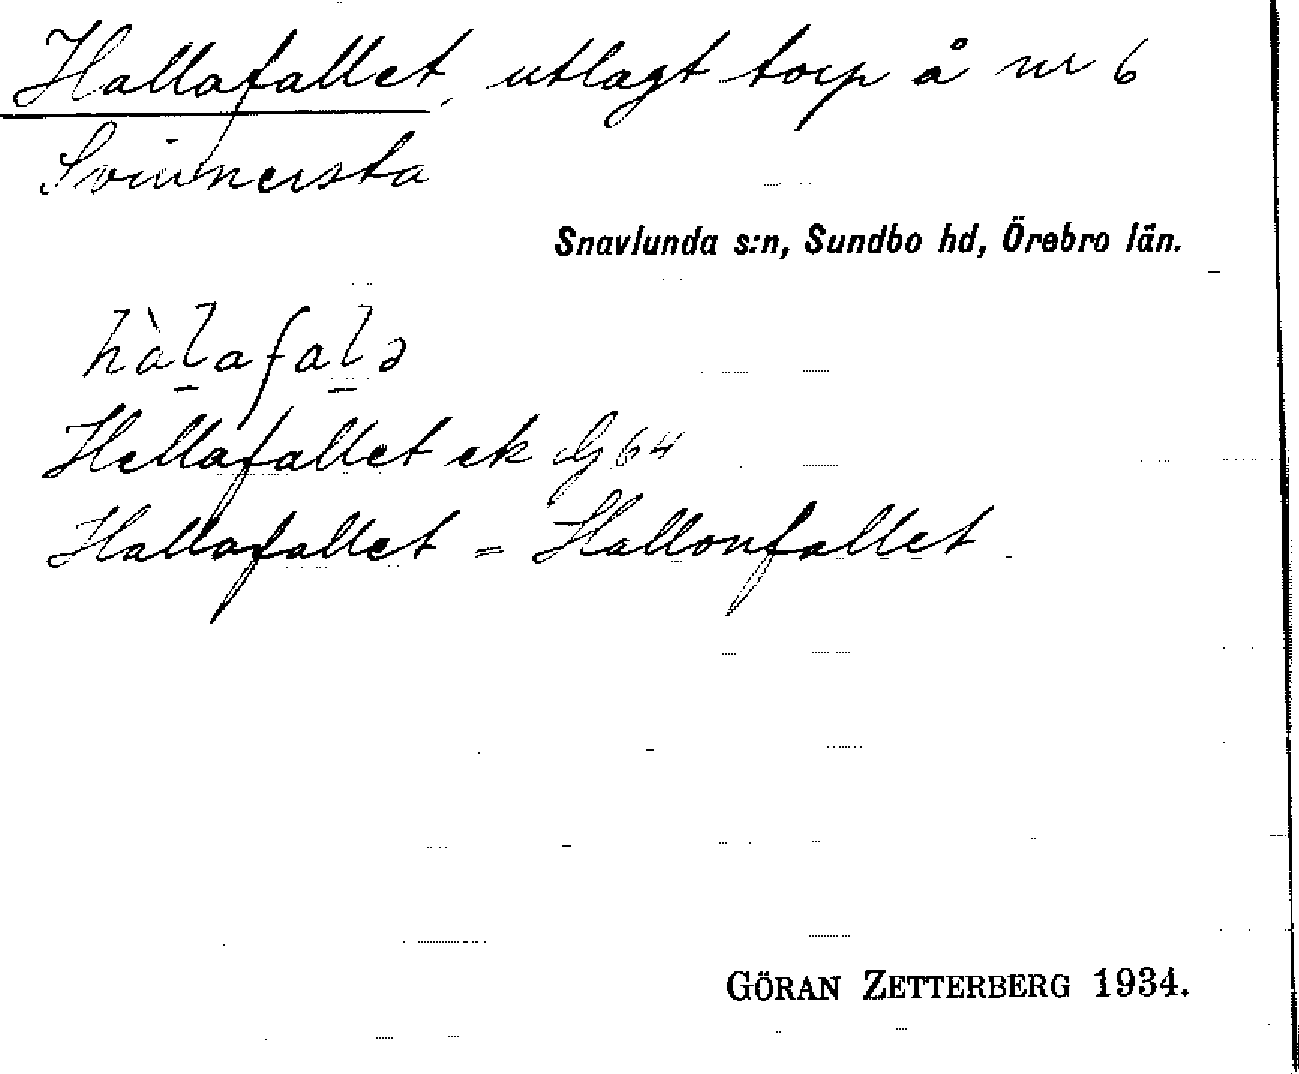 Hallafallet, utlagt torp å nr 6
Svinnersta
Snavlunda s:n, Sundbo hd, Örebro län.
hàl̲afal̲ə
Hellafallet ek G 64
Hallafallet = Hallonfallet
GÖRAN ZETTERBERG 1934.